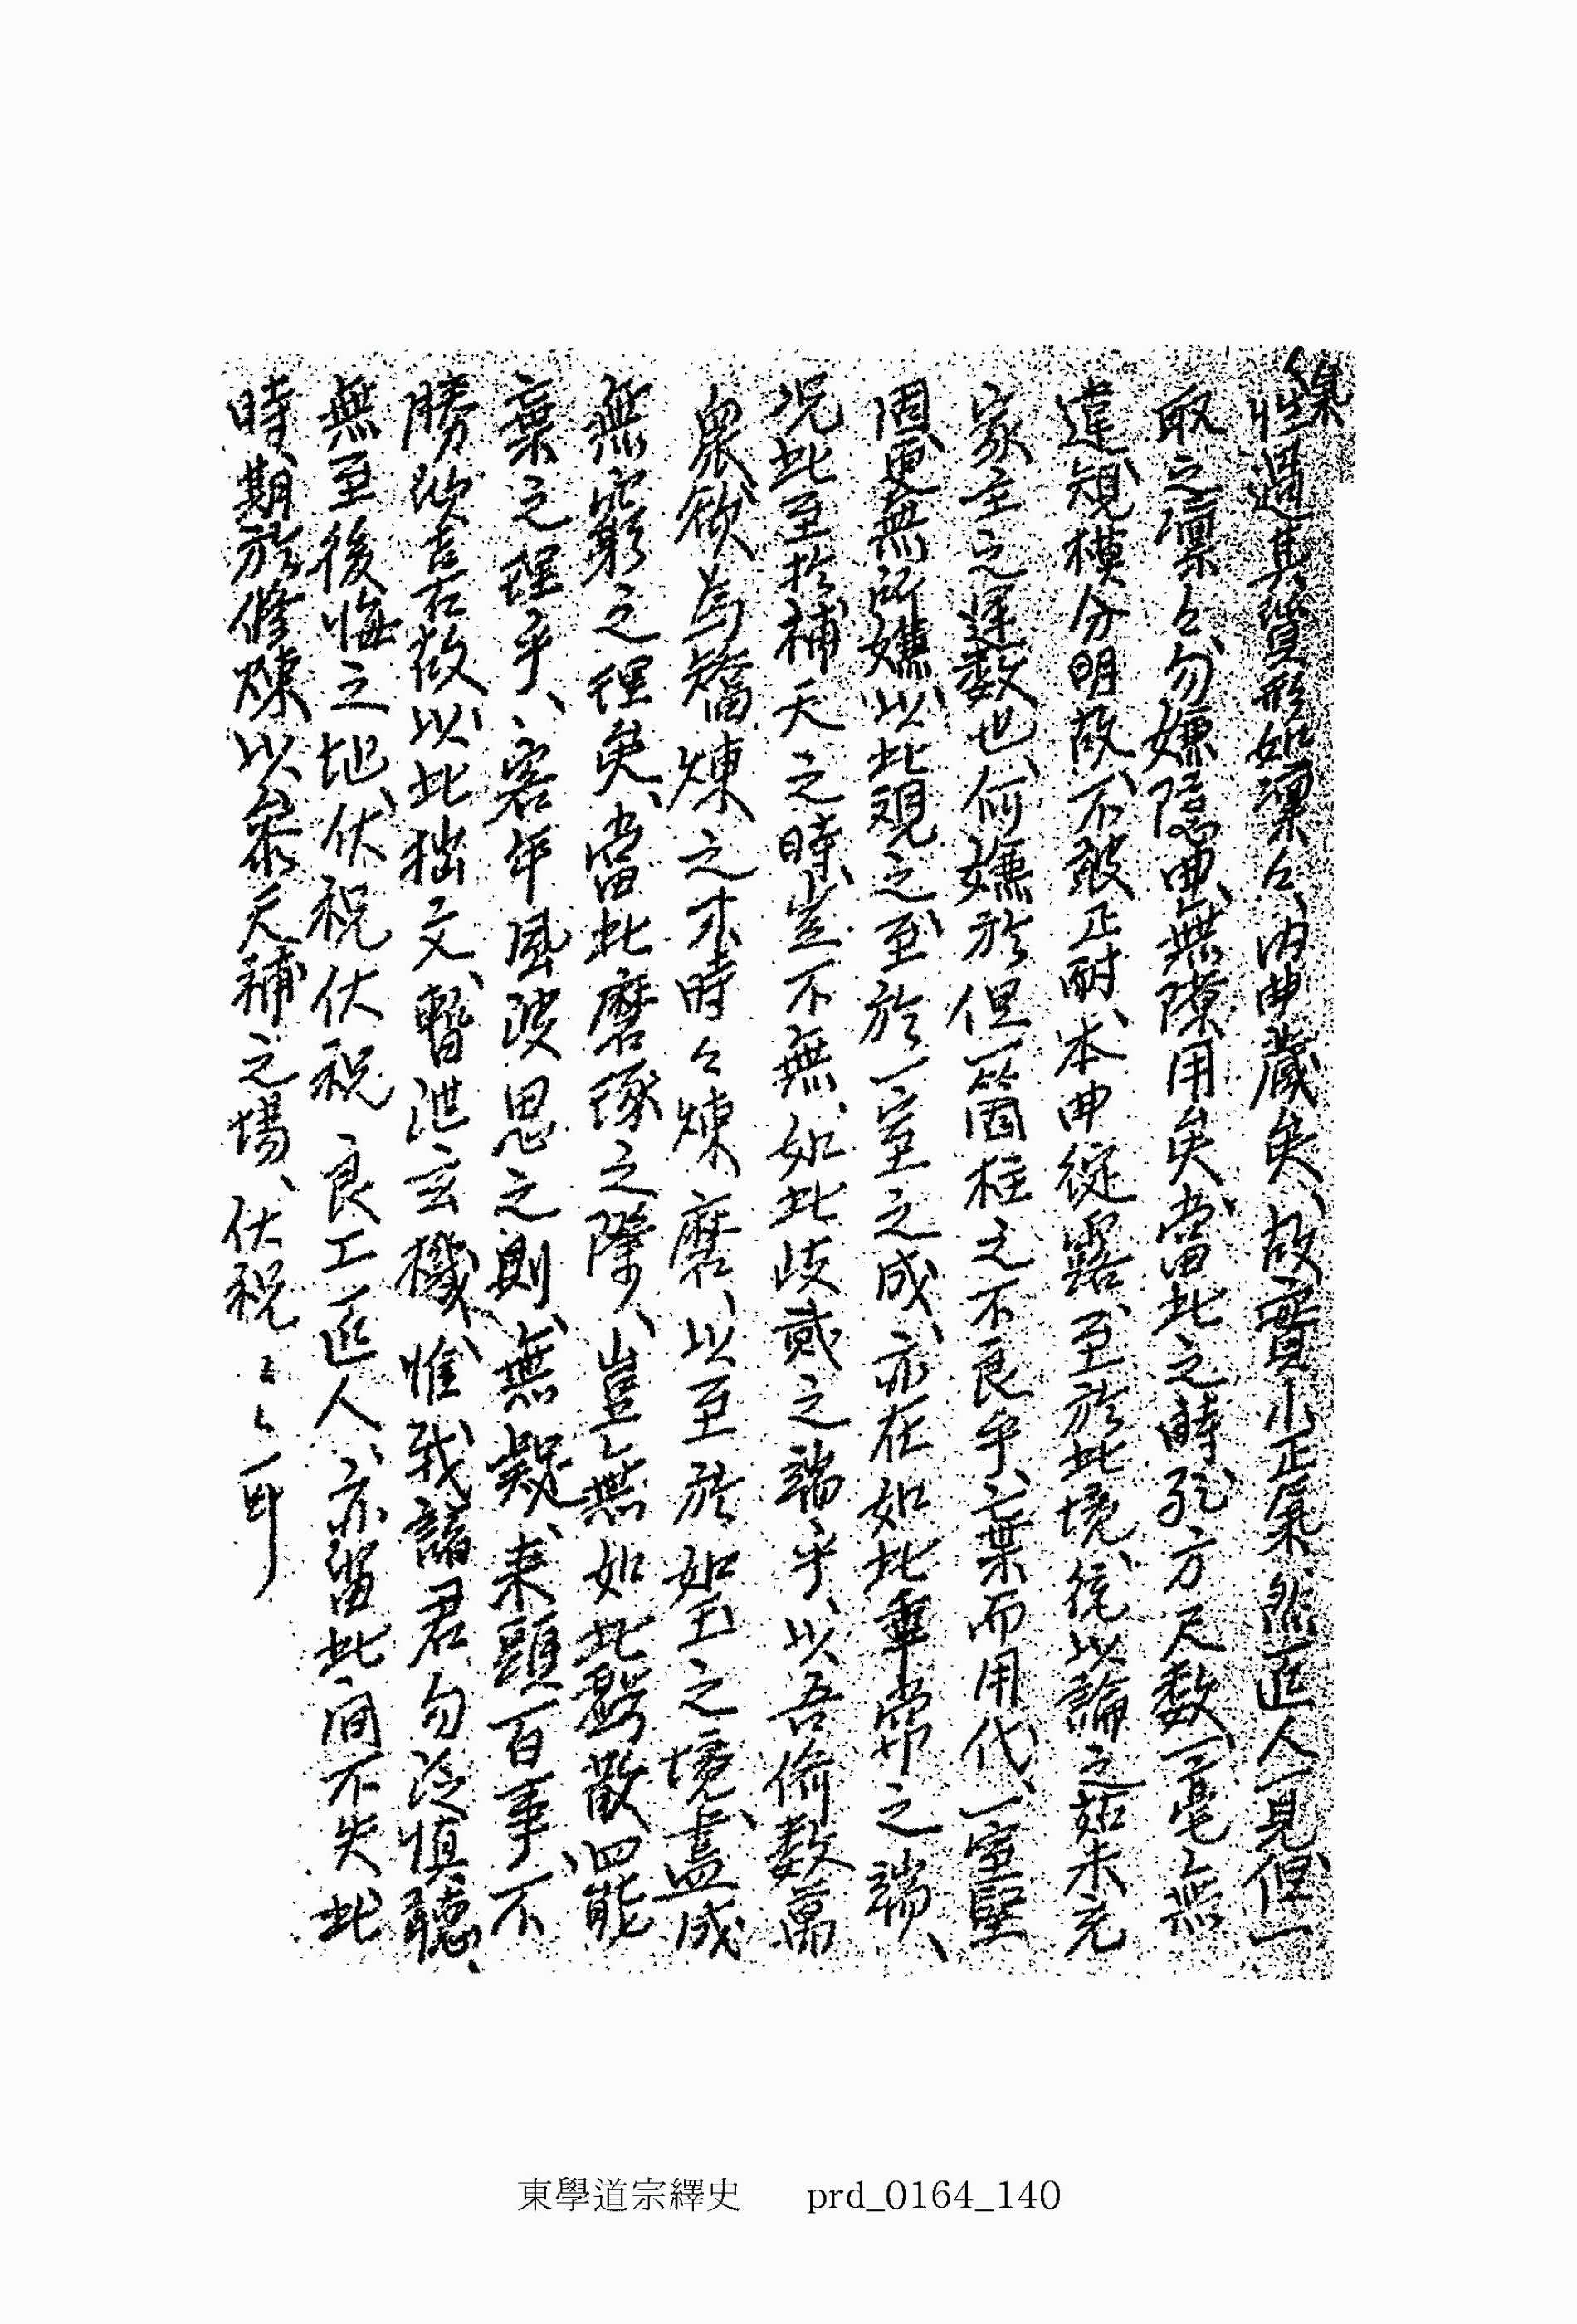 性過其質形如凜々、內曲藏矣、故實小正氣、然匠人一見、但一
取之凜々、勿嫌隱曲、無隙用矣、當此之時、孔方尺數、一毫無
違、規模分明、故不敢正耐、本曲綻露、至於此境、統以論之、茹未充
家主之運數也、何嫌於但一箇柱之不良乎、棄而用代、一室堅
固、更無所嫌、以此觀之、至於一室之成、亦在如此車常之端、
况此至於補天之時、豈不無如此歧貳之端乎、以吾儕數萬
衆、欲為矯煉之才、時々煉磨、以至於如玉之境、盡成
無窮之理矣、當此磨琢之際、豈無如此彫散四能
棄之理乎、客年風波思之則、無疑、来頭百事、不
勝欣喜、右故以此拙文、暫泄玄機、惟我諸君勿泛慎聽、
無至後悔之地、伏祝伏祝 良工匠人、亦當此間不失此
時、期於修煉、以參天補之場、伏祝々々耳
東學道宗繹史 prd_0164_140